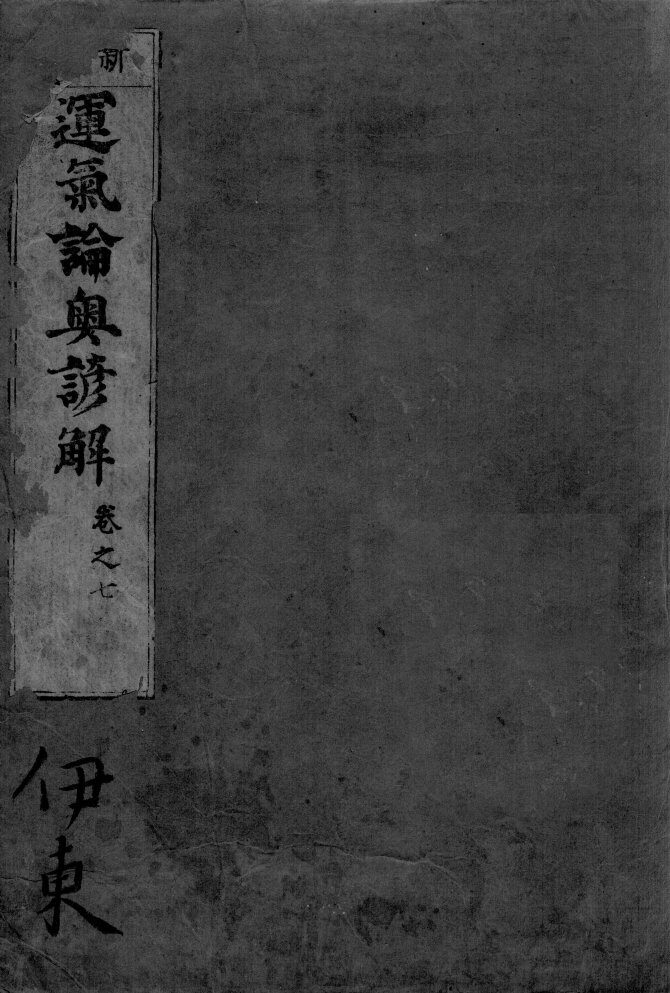 新
運氣論奧諺解
卷之七
伊東